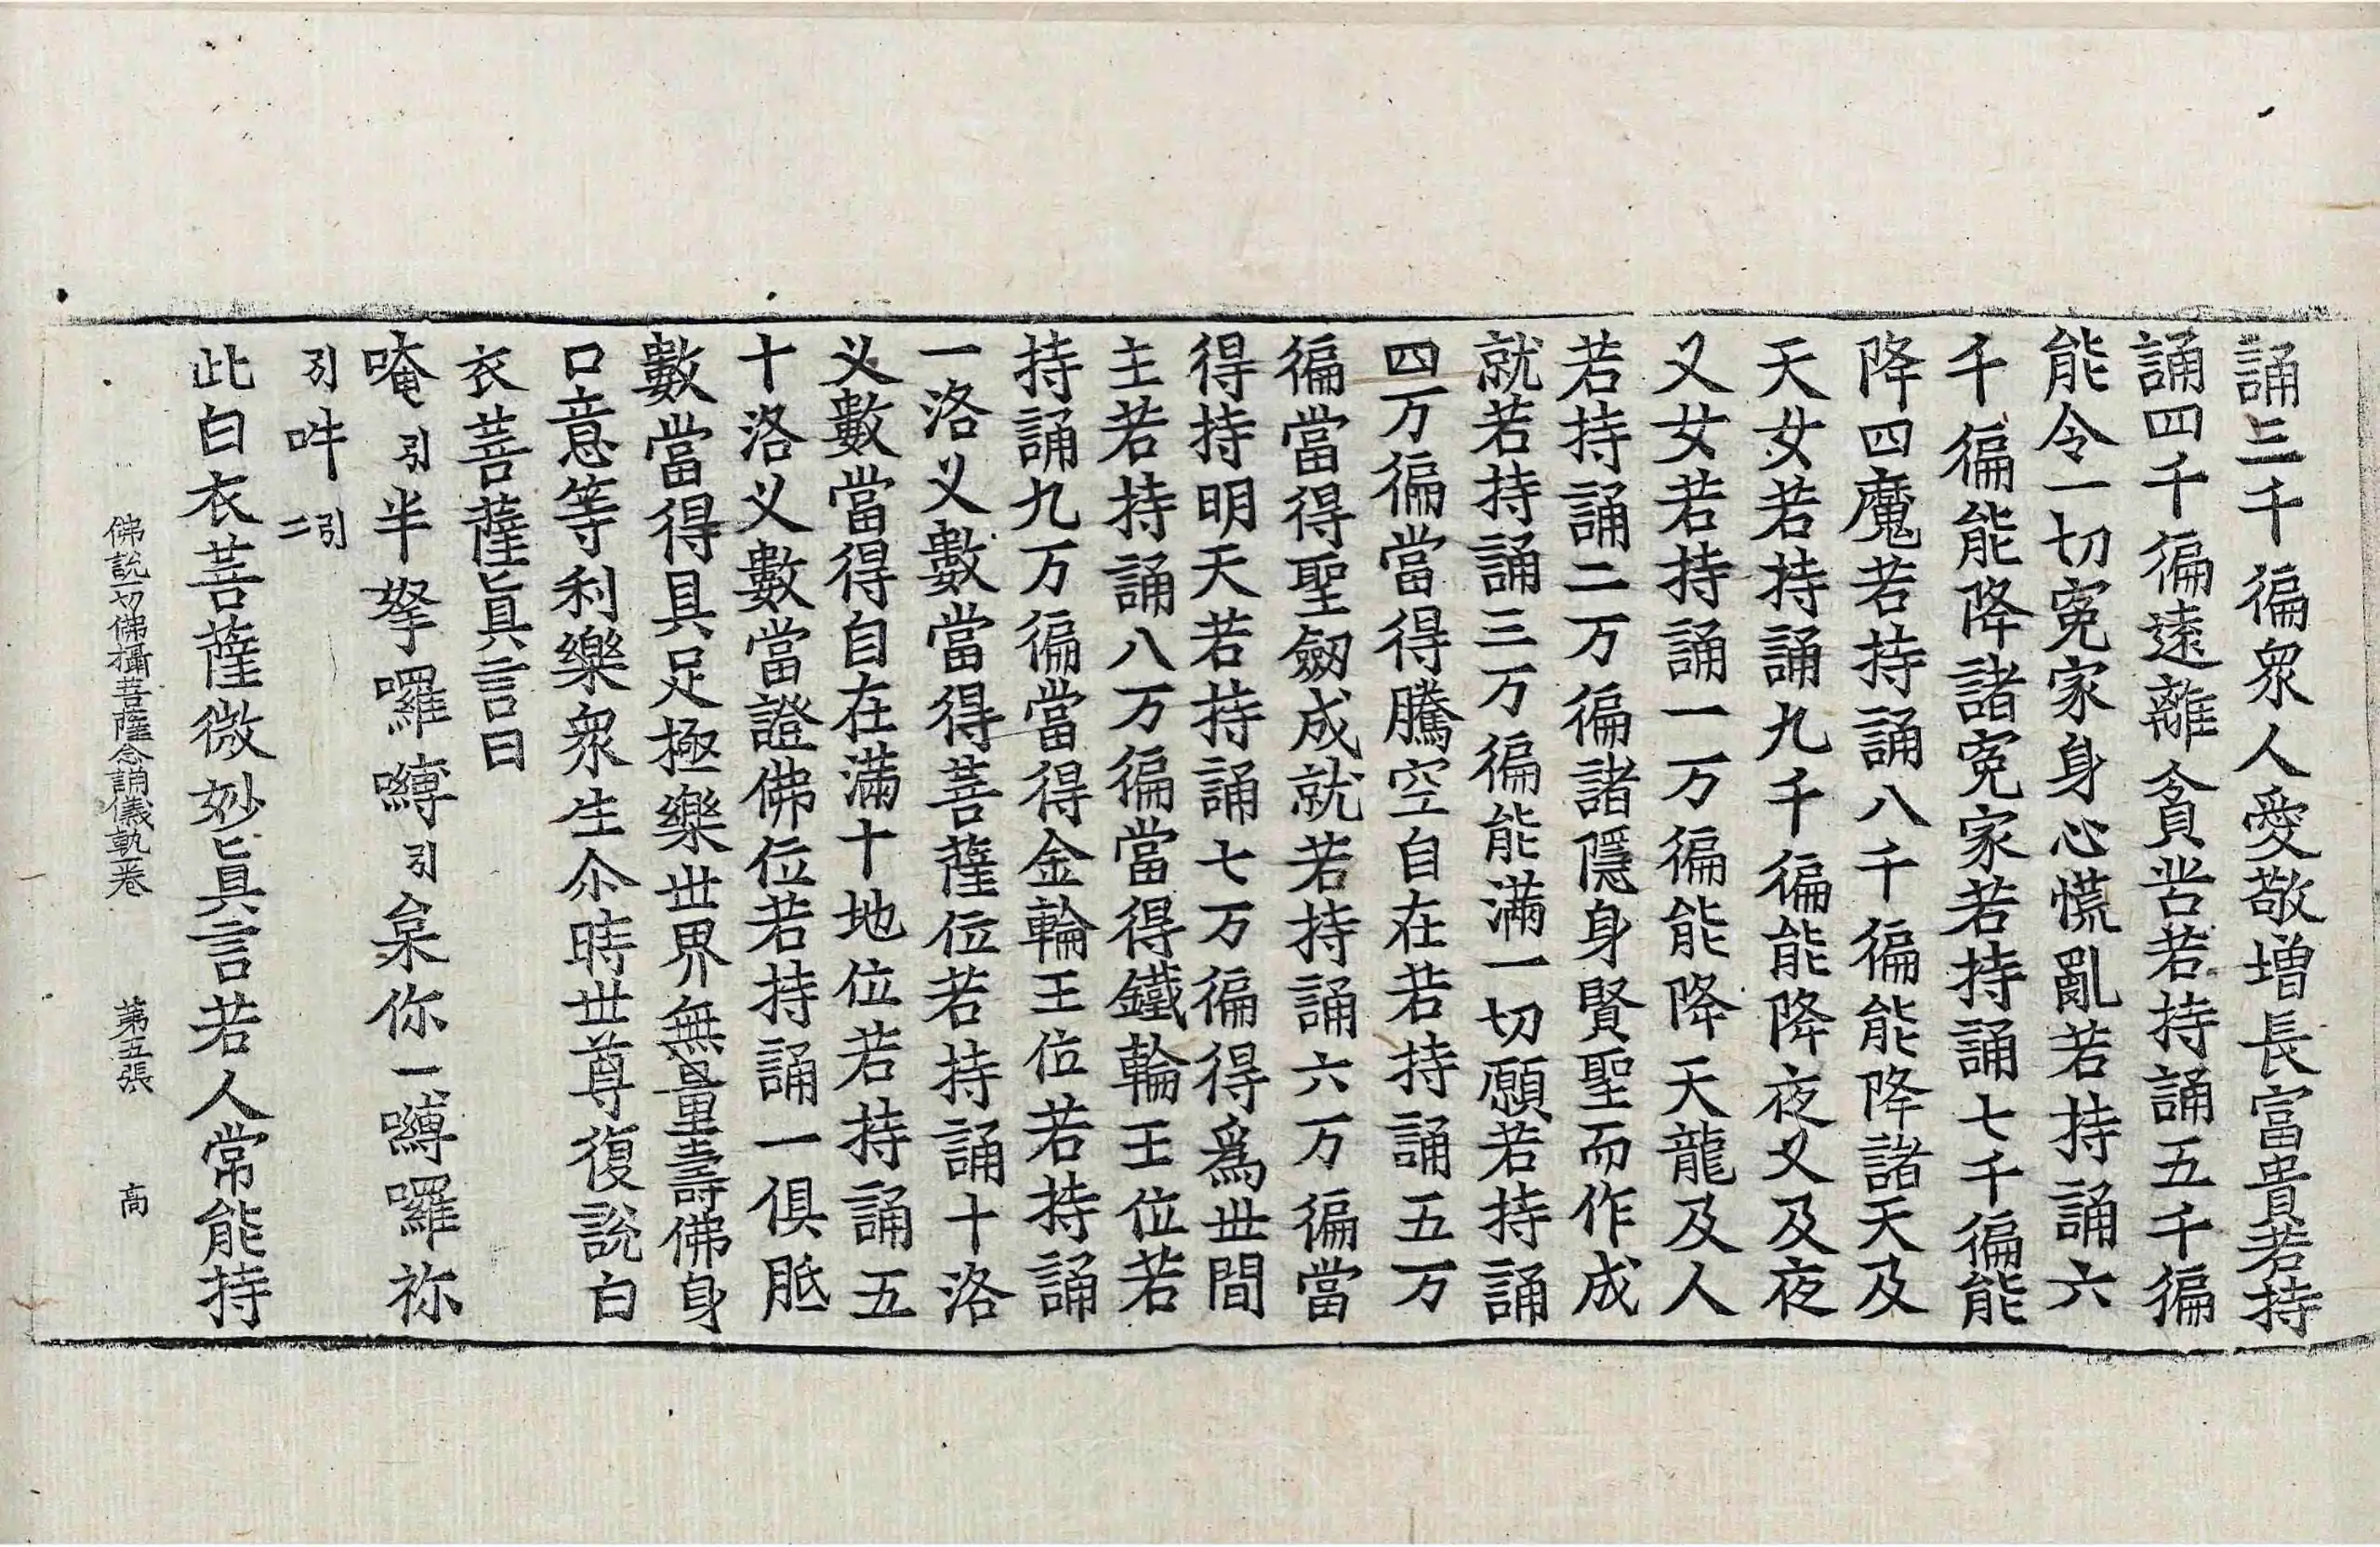 誦三千徧衆人愛敬增長富貴若持
誦四千徧遠離貪苦若持誦五千徧
能令一切寃家身心慌亂若持誦六
千徧能降諸寃家若持誦七千徧能
降四魔若持誦八千徧能降諸天及
天女若持誦九千徧能降夜义及夜
义女若持誦一万徧能降天龍及人
若持誦二万徧諸隱身賢聖而作成
就若持誦三万徧能滿一切願若持誦
四万徧當得騰空自在若持誦五万
徧當得聖劒成就若持誦六万徧當
得持明天若持誦七万徧得爲世間
主若持誦八万徧當得鐵輪王位若
持誦九万徧當得金輪王位若持誦
一洛义數當得菩薩位若持誦十洛
义數當得自在滿十地位若持誦五
十洛义數當證佛位若持誦一俱胝
數當得具足極樂世界無量壽佛身
口意等利樂衆生尒時世尊復說白
衣菩薩眞言曰
唵引半拏囉嚩引枲你一嚩囉祢
引吽引二
此白衣菩薩微妙眞言若人常能持
佛說一切佛攝菩薩念誦儀軌一卷 第五張 高